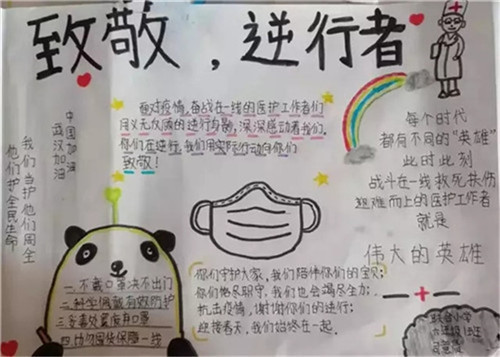 致敬，逆行者
面对疫情，奋战在一线的医护工作者们
用义无反顾的逆行身影，深深感动着我们。
你们在逆行，我们用实际行动向你们
致敬！
中国加油
武汉加油
我们当护他们周全
他们护全民生命
每个时代
都有不同的"英雄"
此时此刻
战斗在一线救死扶伤
迎难而上的医护工作者
就是
伟大的英雄
一.不戴口罩决不出门
二.科学佩戴有效防护
三.妥善处置废弃口罩
四.
保障一线
你们守护大家，我们陪伴你们的宝贝；
你们恪尽职守，我们也会竭尽全力；
抗击疫情，谢谢你们的逆行；
迎接春天，我们始终在一起。
小学